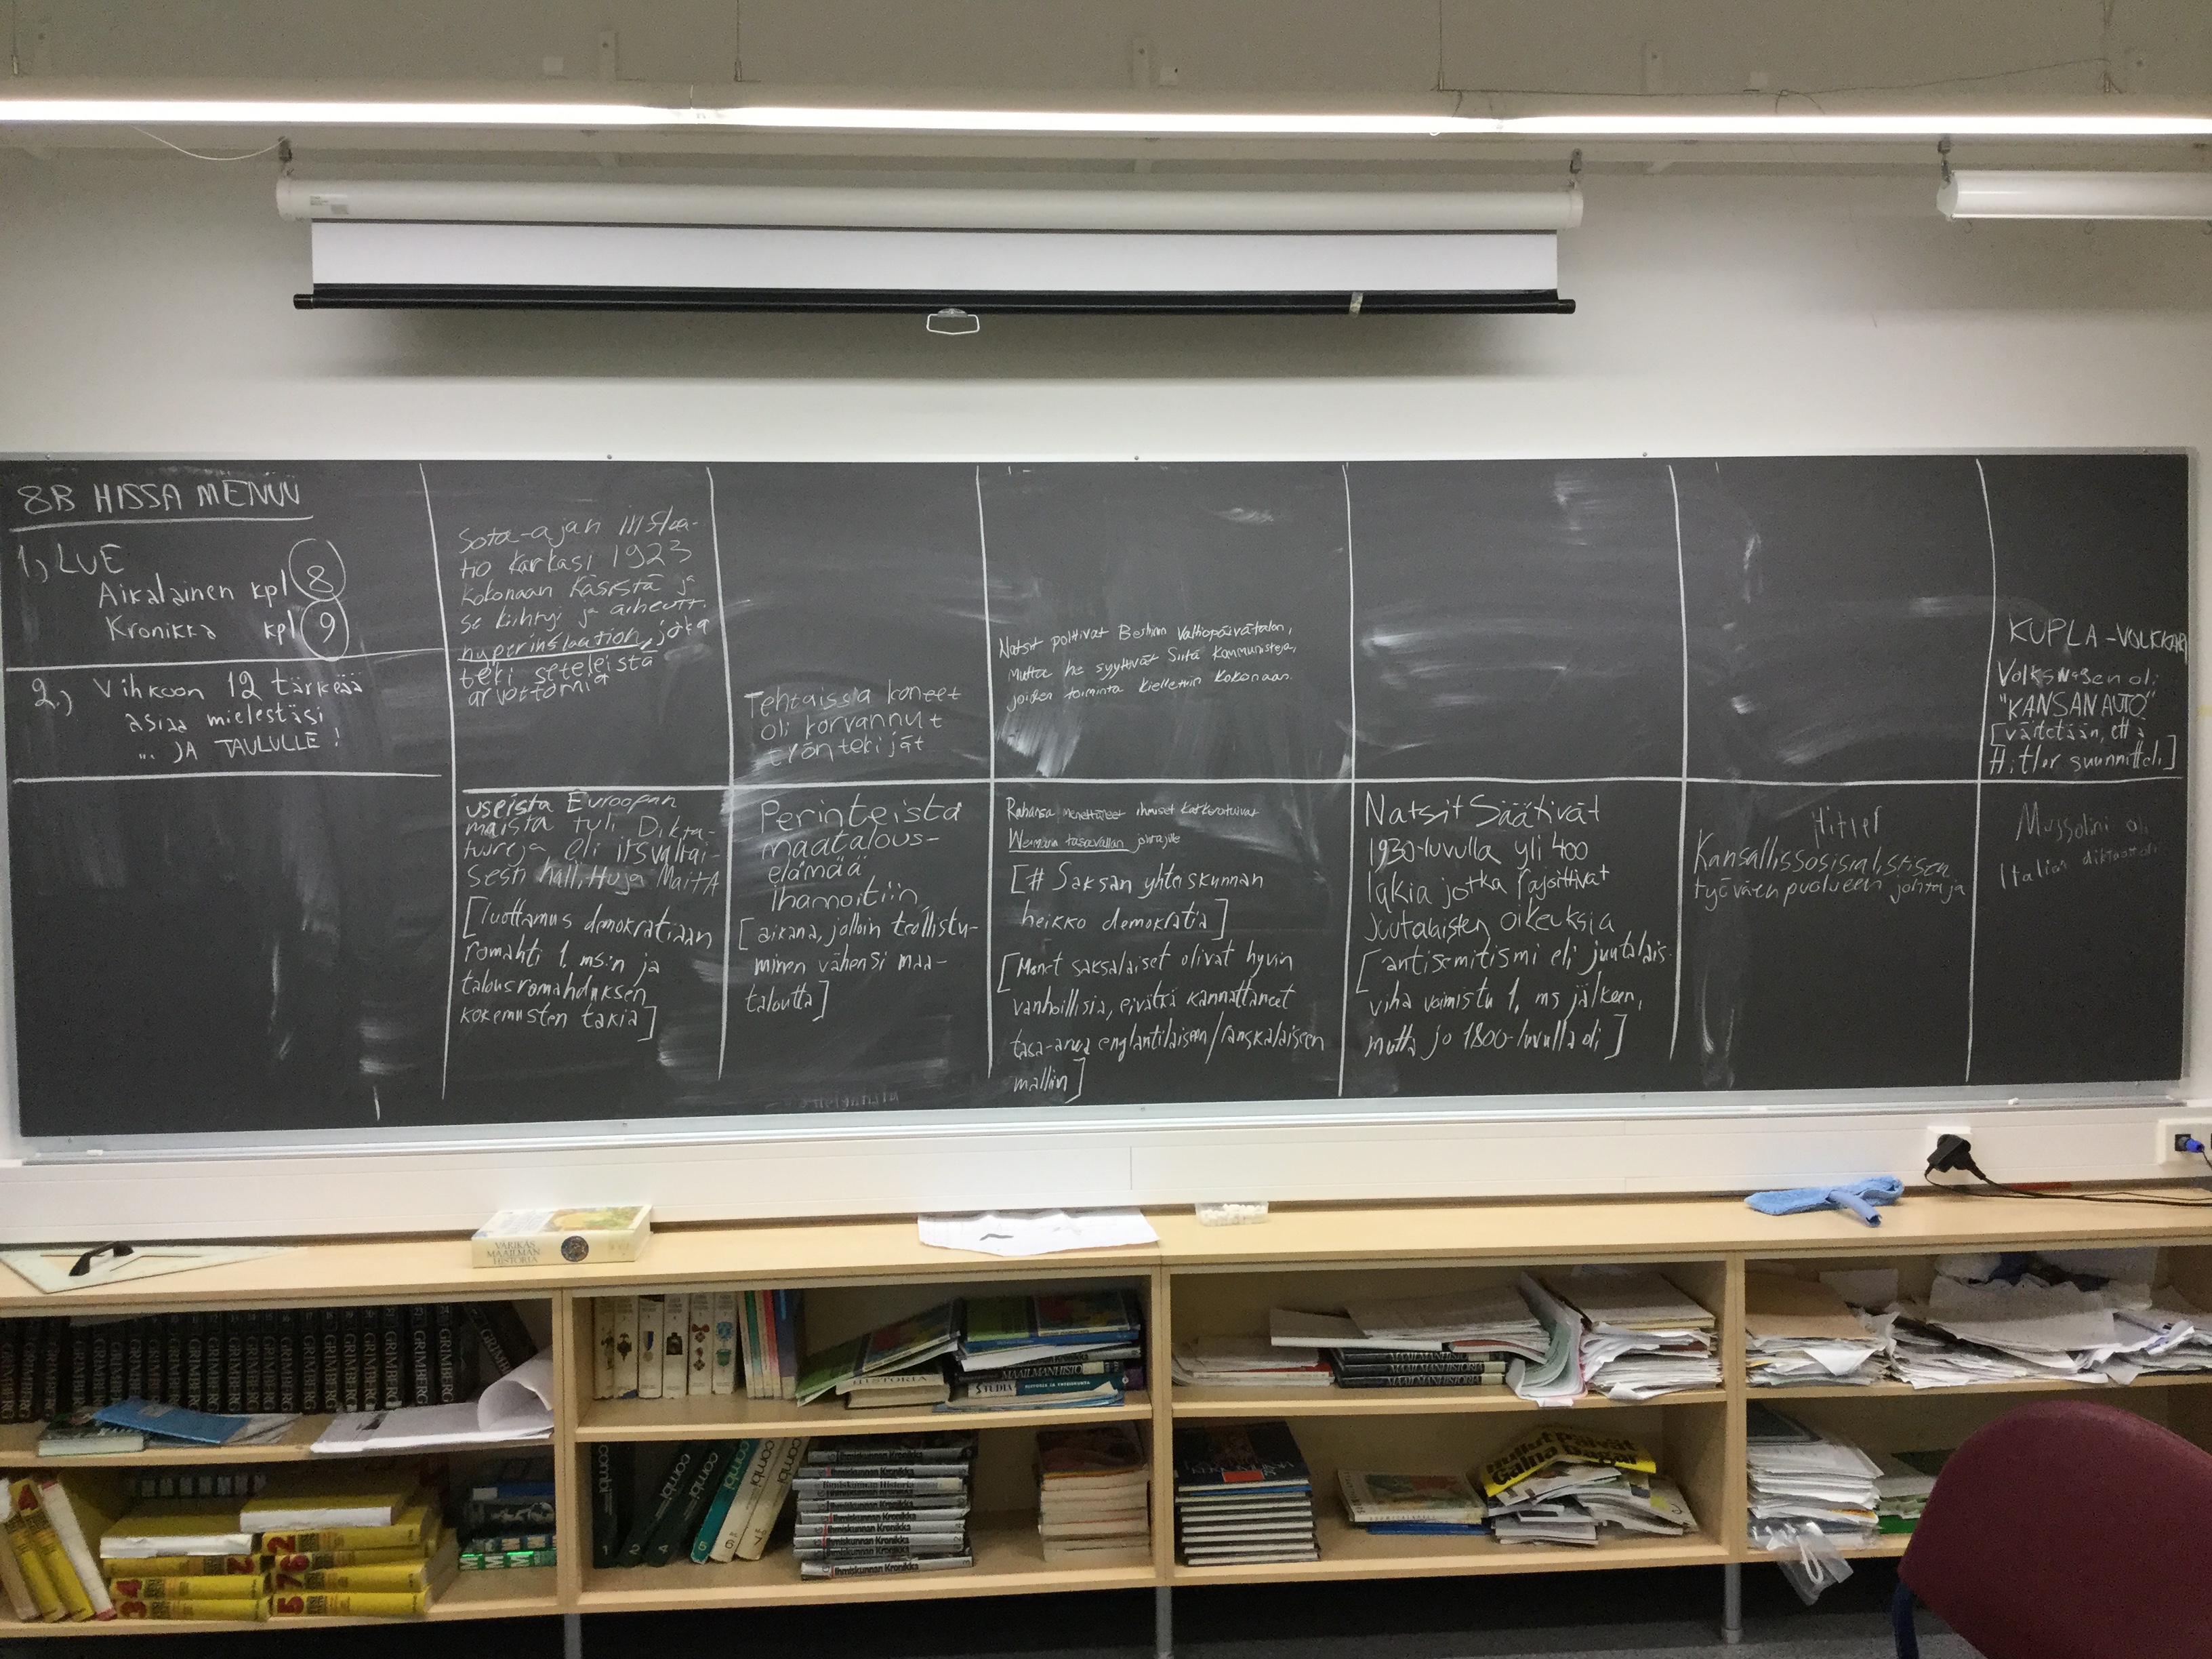 8B HISSA MENUU
1) LUE
Aikalainen kpl 8
Kronikka kpl 9
2.) Vihkoon 12 tärkeää
asiaa mielestäsi
... JA TAULULLE!
Sota-ajan inflaa-
tio karkasi 1923
kokonaan käsistä ja
se kiihtyi ja aiheutt.
hyperinslaation, joka
teki seteleistä
arvottomia
Tehtaissa koneet
oli korvannut
työntekijät
Natsit polttivat Berliinin Valtiopäivätalon,
mutta he syyttivät siitä kommunisteja,
joiden toiminta kiellettiin kokonaan.
KUPLA-VOLKKARI
Volkswagen oli
"KANSAN AUTO"
[väitetään, että
Hitler suunnitteli]
useista Euroopan
maista tuli Dikta-
tuureja eli itsvaltai-
sesti hallittuja MaitA
[luottamus demokratiaan
romahti 1. ms:n ja
talousromahduksen
kokemusten takia]
Perinteistä
maatalous-
elämää
ihannoitiin
[aikana, jolloin teollistu-
minen vähensi maa-
taloutta]
Rahansa menettäneet ihmiset katkeroituivat
Weimarin tasavallan johtajille
[# Saksan yhteiskunnan
heikko demokratia]
[Monet saksalaiset olivat hyvin
vanhoillisia, eivätkä kannattaneet
tasa-arvoa englantilaiseen/ranskalaiseen
malliin]
Natsit Säätivät
1930-luvulla yli 400
lakia jotka rajoittivat
Juutalaisten oikeuksia
[antisemitismi eli juutalais-
viha voimistu 1. ms jälkeen,
mutta jo 1800-luvulla oli]
Hitler
Kansallissosialistisen
työväenpuolueen johtaja
Mussolini oli
Italian diktaattori
VÄRIKÄS
MAAILMAN
HISTORIA
GRIMBERG
GRIMBERG
GRIMBERG
GRIMBERG
HISTORIA
MAAILMANHISTO
STUDIA
MAAILMANHISTORIA
MAAILMANHISTORIA
MAAILMANHISTORIA
combi 1
combi 2
combi 4
combi 5
combi 6
combi 7
Ihmiskunnan Kronikka
Ihmiskunnan Kronikka
Ihmiskunnan Historia
Ihmiskunnan Kronikka
Ihmiskunnan Kronikka
Ihmiskunnan Kronikka
Ihmiskunnan Kronikka
Ihmiskunnan Kronikka
Hullut Päivät
Galna Dagar